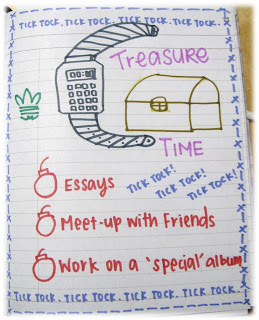 TICK TOCK. TICK TOCK. TICK TOCK. TICK TOCK.
TREASURE
TIME
Essays
TICK TOCK!
TICK TOCK!
TICK TOCK!
Meet-up with Friends
Work on a 'special' album
TICK TOCK. TICK TOCK. TICK TOCK. TICK TOCK.